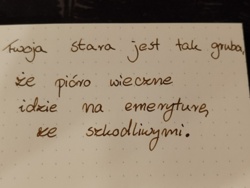 Twoja stara jest tak gruba,
że pióro wieczne
idzie na emeryturę
ze szkodliwymi.